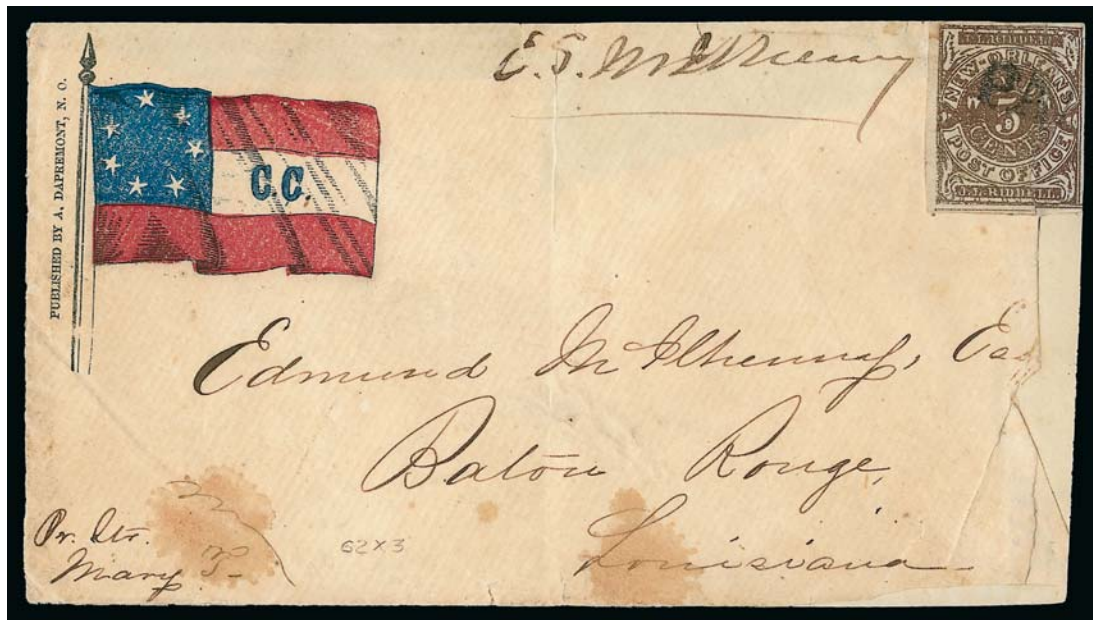 PUBLISHED BY A. DAPREMONT, N. O.
C.C.
J.L. RIDDELL
NEW-ORLEANS
5
CENTS
POST OFFICE
J.L. RIDDELL
Edmund McIlhenny, Esq
Baton Rouge,
Louisiana
Pr. Str.
Mary T.
62X3